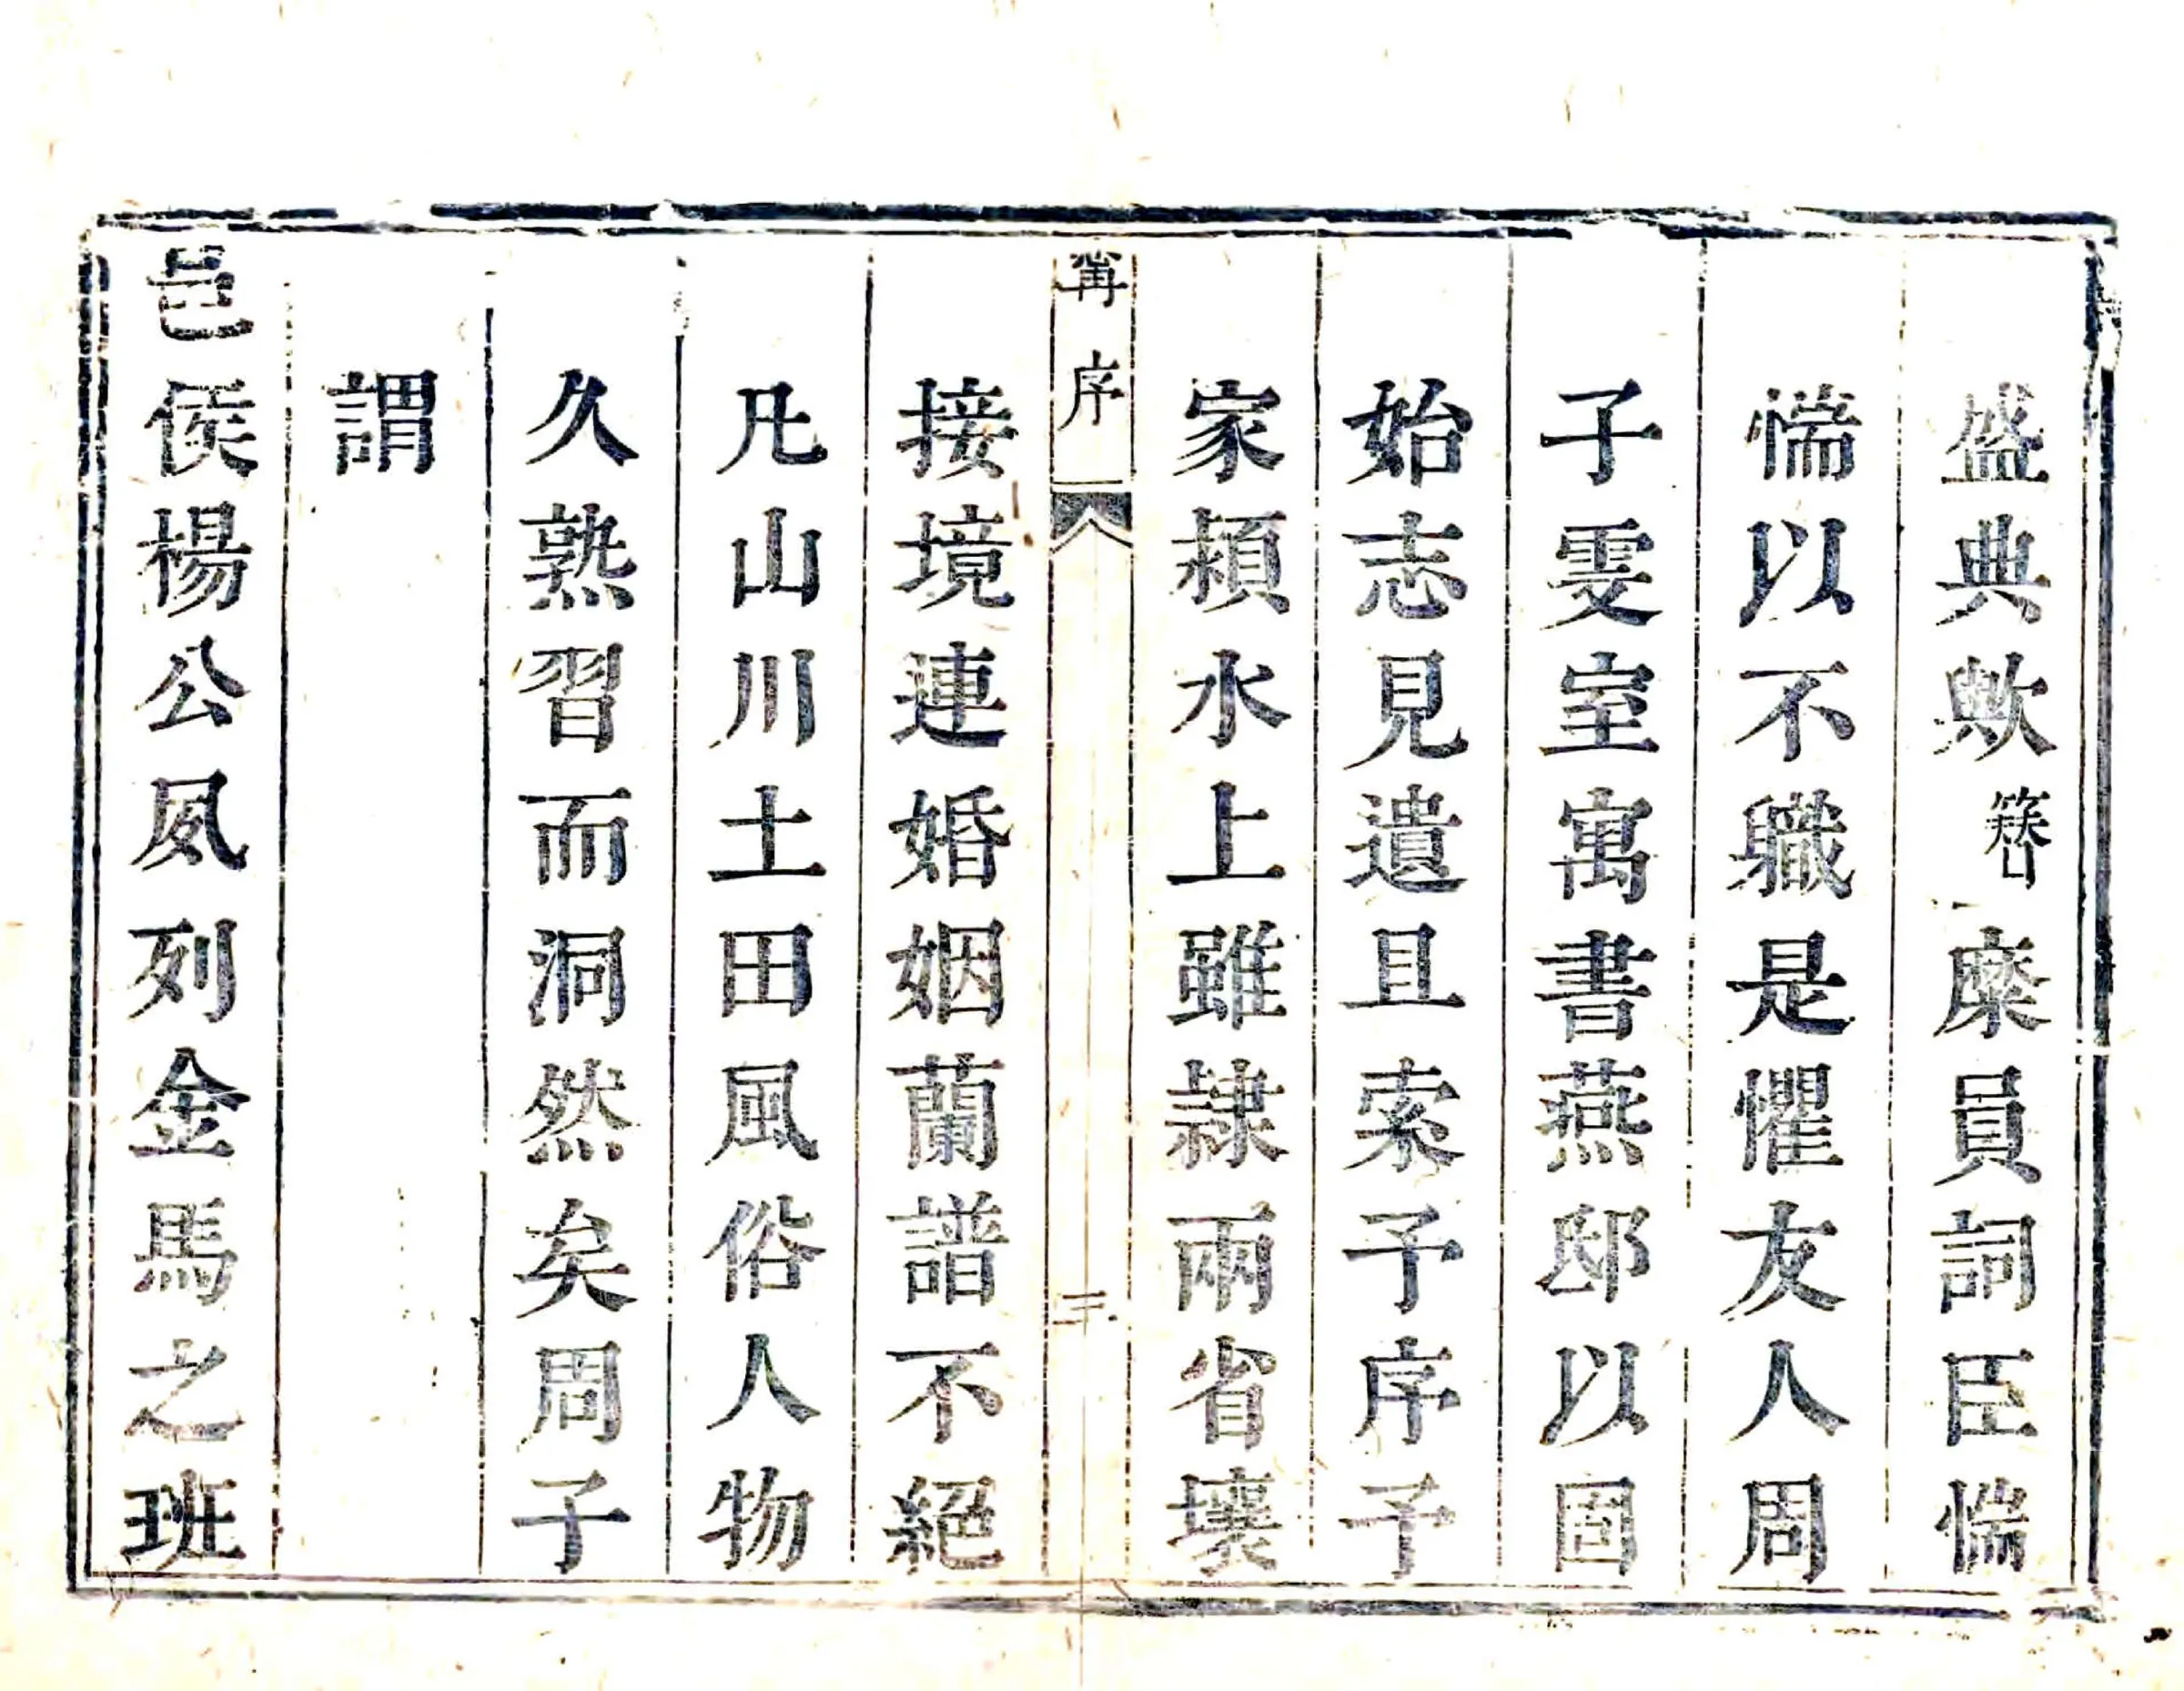 盛典歟糜員詞臣惴
惴以不職是懼友人周
子雯室寓書燕邸以固
始志見遺且索予序予
家潁水上雖隸兩省壤
甯序 三
接境連婚姻蘭譜不絕
凡山川土田風俗人物
久熟習而洞然矣周子
謂
邑侯楊公夙列金馬之班